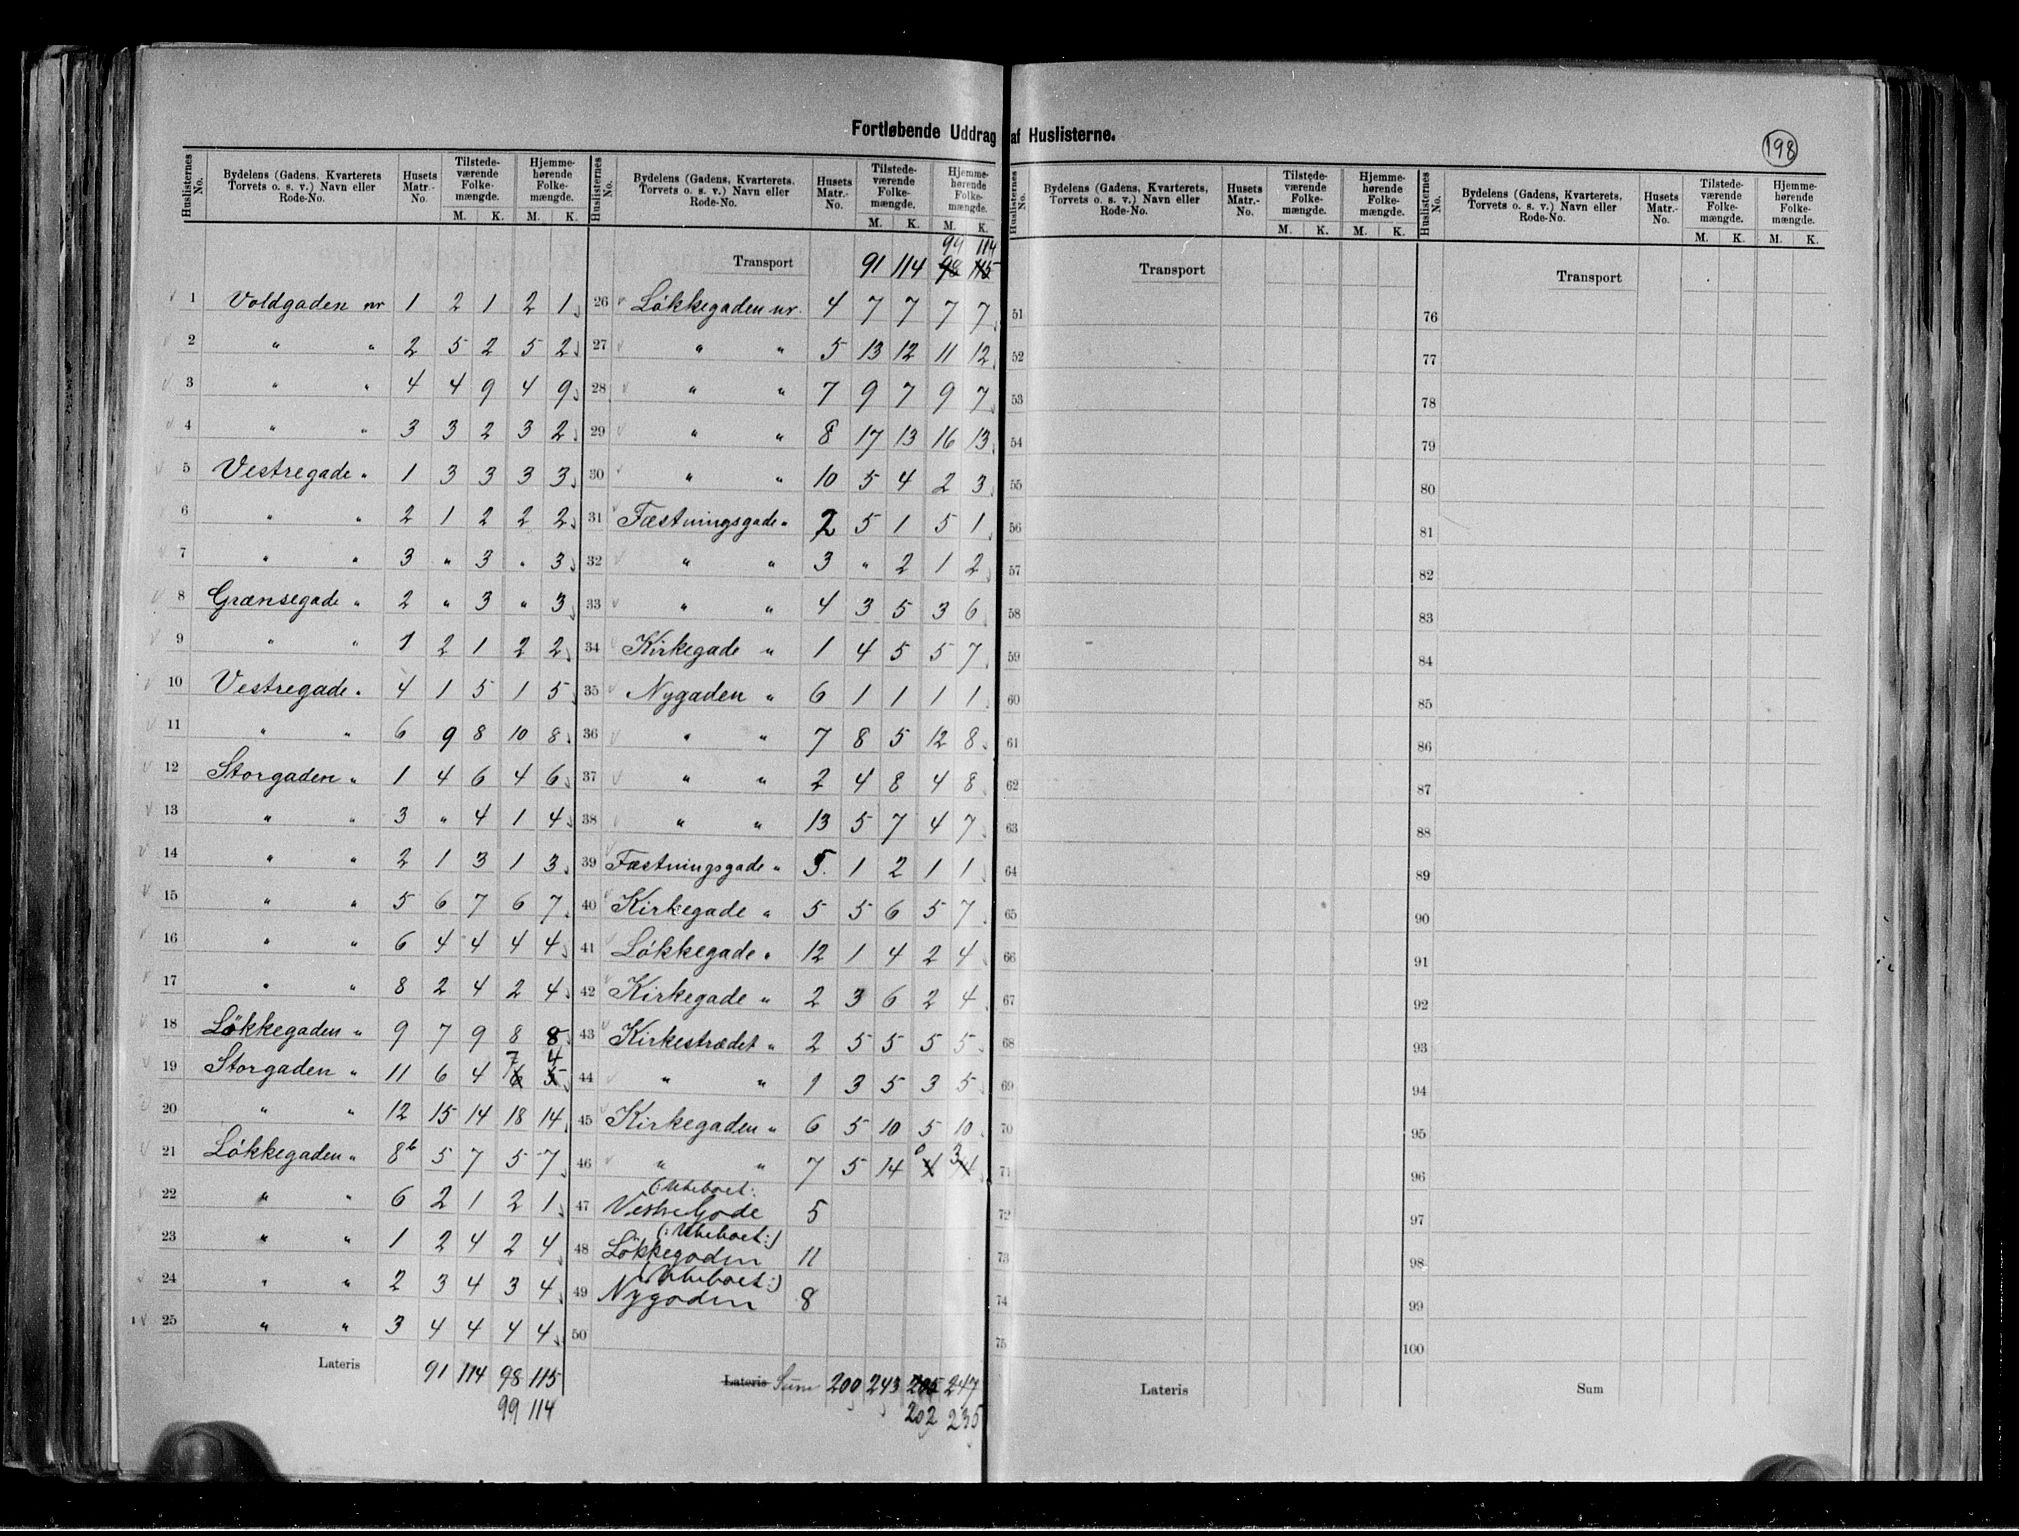 Fortløbende Uddrag af Huslisterne.
198
Huslisternes No. | Bydelens (Gadens, Kvarterets Torvets o. s. v.) Navn eller Rode-No. | Husets Matr.-No. | Tilstedeværende Folkemængde. M. K. | Hjemmehørende Folkemængde. M. K.
1 Voldgaden nr 1 2 1 2 1
2 " " 2 5 2 5 2
3 " " 4 4 9 4 9
4 " " 3 3 2 3 2
5 Vestregade " 1 3 3 3 3
6 " " 2 1 2 2 2
7 " " 3 " 3 " 3
8 Grænsegade " 2 " 3 " 3
9 " " 1 2 1 2 2
10 Vestregade " 4 1 5 1 5
11 " " 6 9 8 10 8
12 Storgaden " 1 4 6 4 6
13 " " 3 " 4 1 4
14 " " 2 1 3 1 3
15 " " 5 6 7 6 7
16 " " 6 4 4 4 4
17 " " 8 2 4 2 4
18 Løkkegaden " 9 7 9 8 8
7 4
19 Storgaden " 11 6 4 6 5
20 " " 12 15 14 18 14
21 Løkkegaden " 8b 5 7 5 7
22 " " 6 2 1 2 1
23 " " 1 2 4 2 4
24 " " 2 3 4 3 4
25 " " 3 4 4 4 4
Lateris 91 114 98 115
99 114
Huslisternes No. | Bydelens (Gadens, Kvarterets, Torvets o. s. v.) Navn eller Rode-No. | Husets Matr.-No. | Tilstedeværende Folkemængde. M. K. | Hjemmehørende Folkemængde. M. K.
99 114
Transport 91 114 98 115
26 Løkkegaden nr. 4 7 7 7 7
27 " " 5 13 12 11 12
28 " " 7 9 7 9 7
29 " " 8 17 13 16 13
30 " " 10 5 4 2 3
31 Fæstningsgade " 2 5 1 5 1
32 " " 3 " 2 1 2
33 " " 4 3 5 3 6
34 Kirkegade " 1 4 5 5 7
35 Nygaden " 6 1 1 1 1
36 " " 7 8 5 12 8
37 " " 2 4 8 4 8
38 " " 13 5 7 4 7
39 Fæstningsgade " 5. 1 2 1 1
40 Kirkegade " 5 5 6 5 7
41 Løkkegade " 12 1 4 2 4
42 Kirkegade " 2 3 6 2 4
43 Kirkestrædet " 2 5 5 5 5
44 " " 1 3 5 3 5
45 Kirkegaden " 6 5 10 5 10
0 3
46 " " 7 5 14 4 4
(:Ubeboet:
47 Vestre Gade 5
(:Ubeboet:)
48 Løkkegaden 11
(:Ubeboet:)
49 Nygaden 8
50
Lateris Sum 200 243 205 247
202 235
Huslisternes No. | Bydelens (Gadens, Kvarterets, Torvets o. s. v.) Navn eller Rode-No. | Husets Matr.-No. | Tilstedeværende Folkemængde. M. K. | Hjemmehørende Folkemængde. M. K.
Transport
51
52
53
54
55
56
57
58
59
60
61
62
63
64
65
66
67
68
69
70
71
72
73
74
75
Lateris
Huslisternes No. | Bydelens (Gadens, Kvarterets, Torvets o. s. v.) Navn eller Rode-No. | Husets Matr.-No. | Tilstedeværende Folkemængde. M. K. | Hjemmehørende Folkemængde. M. K.
Transport
76
77
78
79
80
81
82
83
84
85
86
87
88
89
90
91
92
93
94
95
96
97
98
99
100
Sum